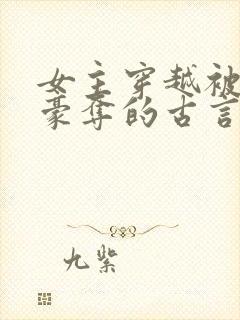 女主穿越被
豪夺的古言
九紫